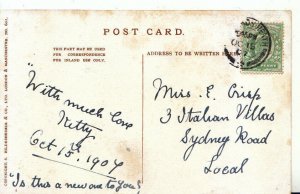 POST CARD.
THIS PART MAY BE USED
FOR CORRESPONDENCE
FOR INLAND USE ONLY.
ADDRESS TO BE WRITTEN
With much love
Kitty
Oct 15. 1904
"Is this a new one to you?"
Miss. E. Crisp
3 Italian Villas
Sydney Road
Local
LONDON & MANCHESTER.